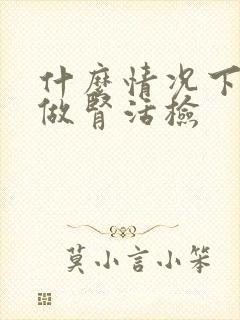 什麽情况下
做腎活檢
莫小言小笨